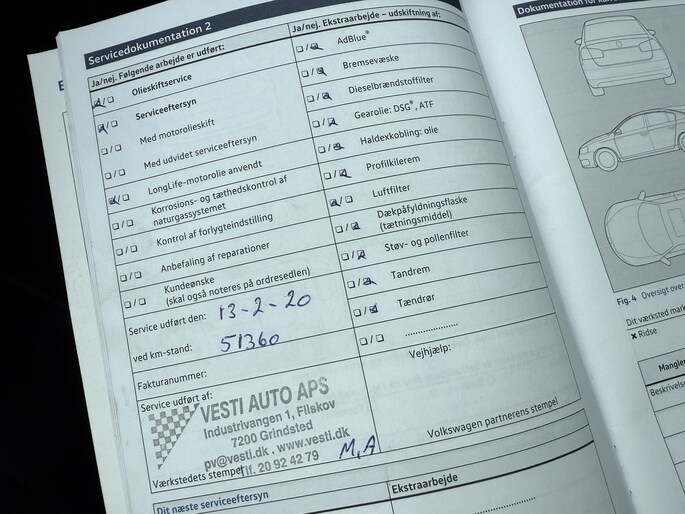 Servicedokumentation 2
Ja/nej. Følgende arbejde er udført:
Olieskiftservice
Serviceeftersyn
Med motorolieskift
Med udvidet serviceeftersyn
LongLife-motorolie anvendt
Korrosions- og tæthedskontrol af
naturgassystemet
Kontrol af forlygteindstilling
Anbefaling af reparationer
Kundeønske
(skal også noteres på ordresedlen)
Service udført den: 13-2-20
ved km-stand: 51360
Fakturanummer:
Service udført af:
VESTI AUTO APS
Industrivangen 1, Filskov
7200 Grindsted
pv@vesti.dk . www.vesti.dk
Tlf. 20 92 42 79
Værkstedets stempel
M,A
Ja/nej. Ekstraarbejde – udskiftning af:
AdBlue®
Bremsevæske
Dieselbrændstoffilter
Gearolie: DSG®, ATF
Haldexkobling: olie
Profilkilerem
Luftfilter
Dækpåfyldningsflaske
(tætningsmiddel)
Støv- og pollenfilter
Tandrem
Tændrør
....................
Vejhjælp:
Volkswagen partnerens stempel
Dit næste serviceeftersyn
Ekstraarbejde
Dokumentation for
Fig. 4 Oversigt over
Dit værksted
× Ridse
Mangler